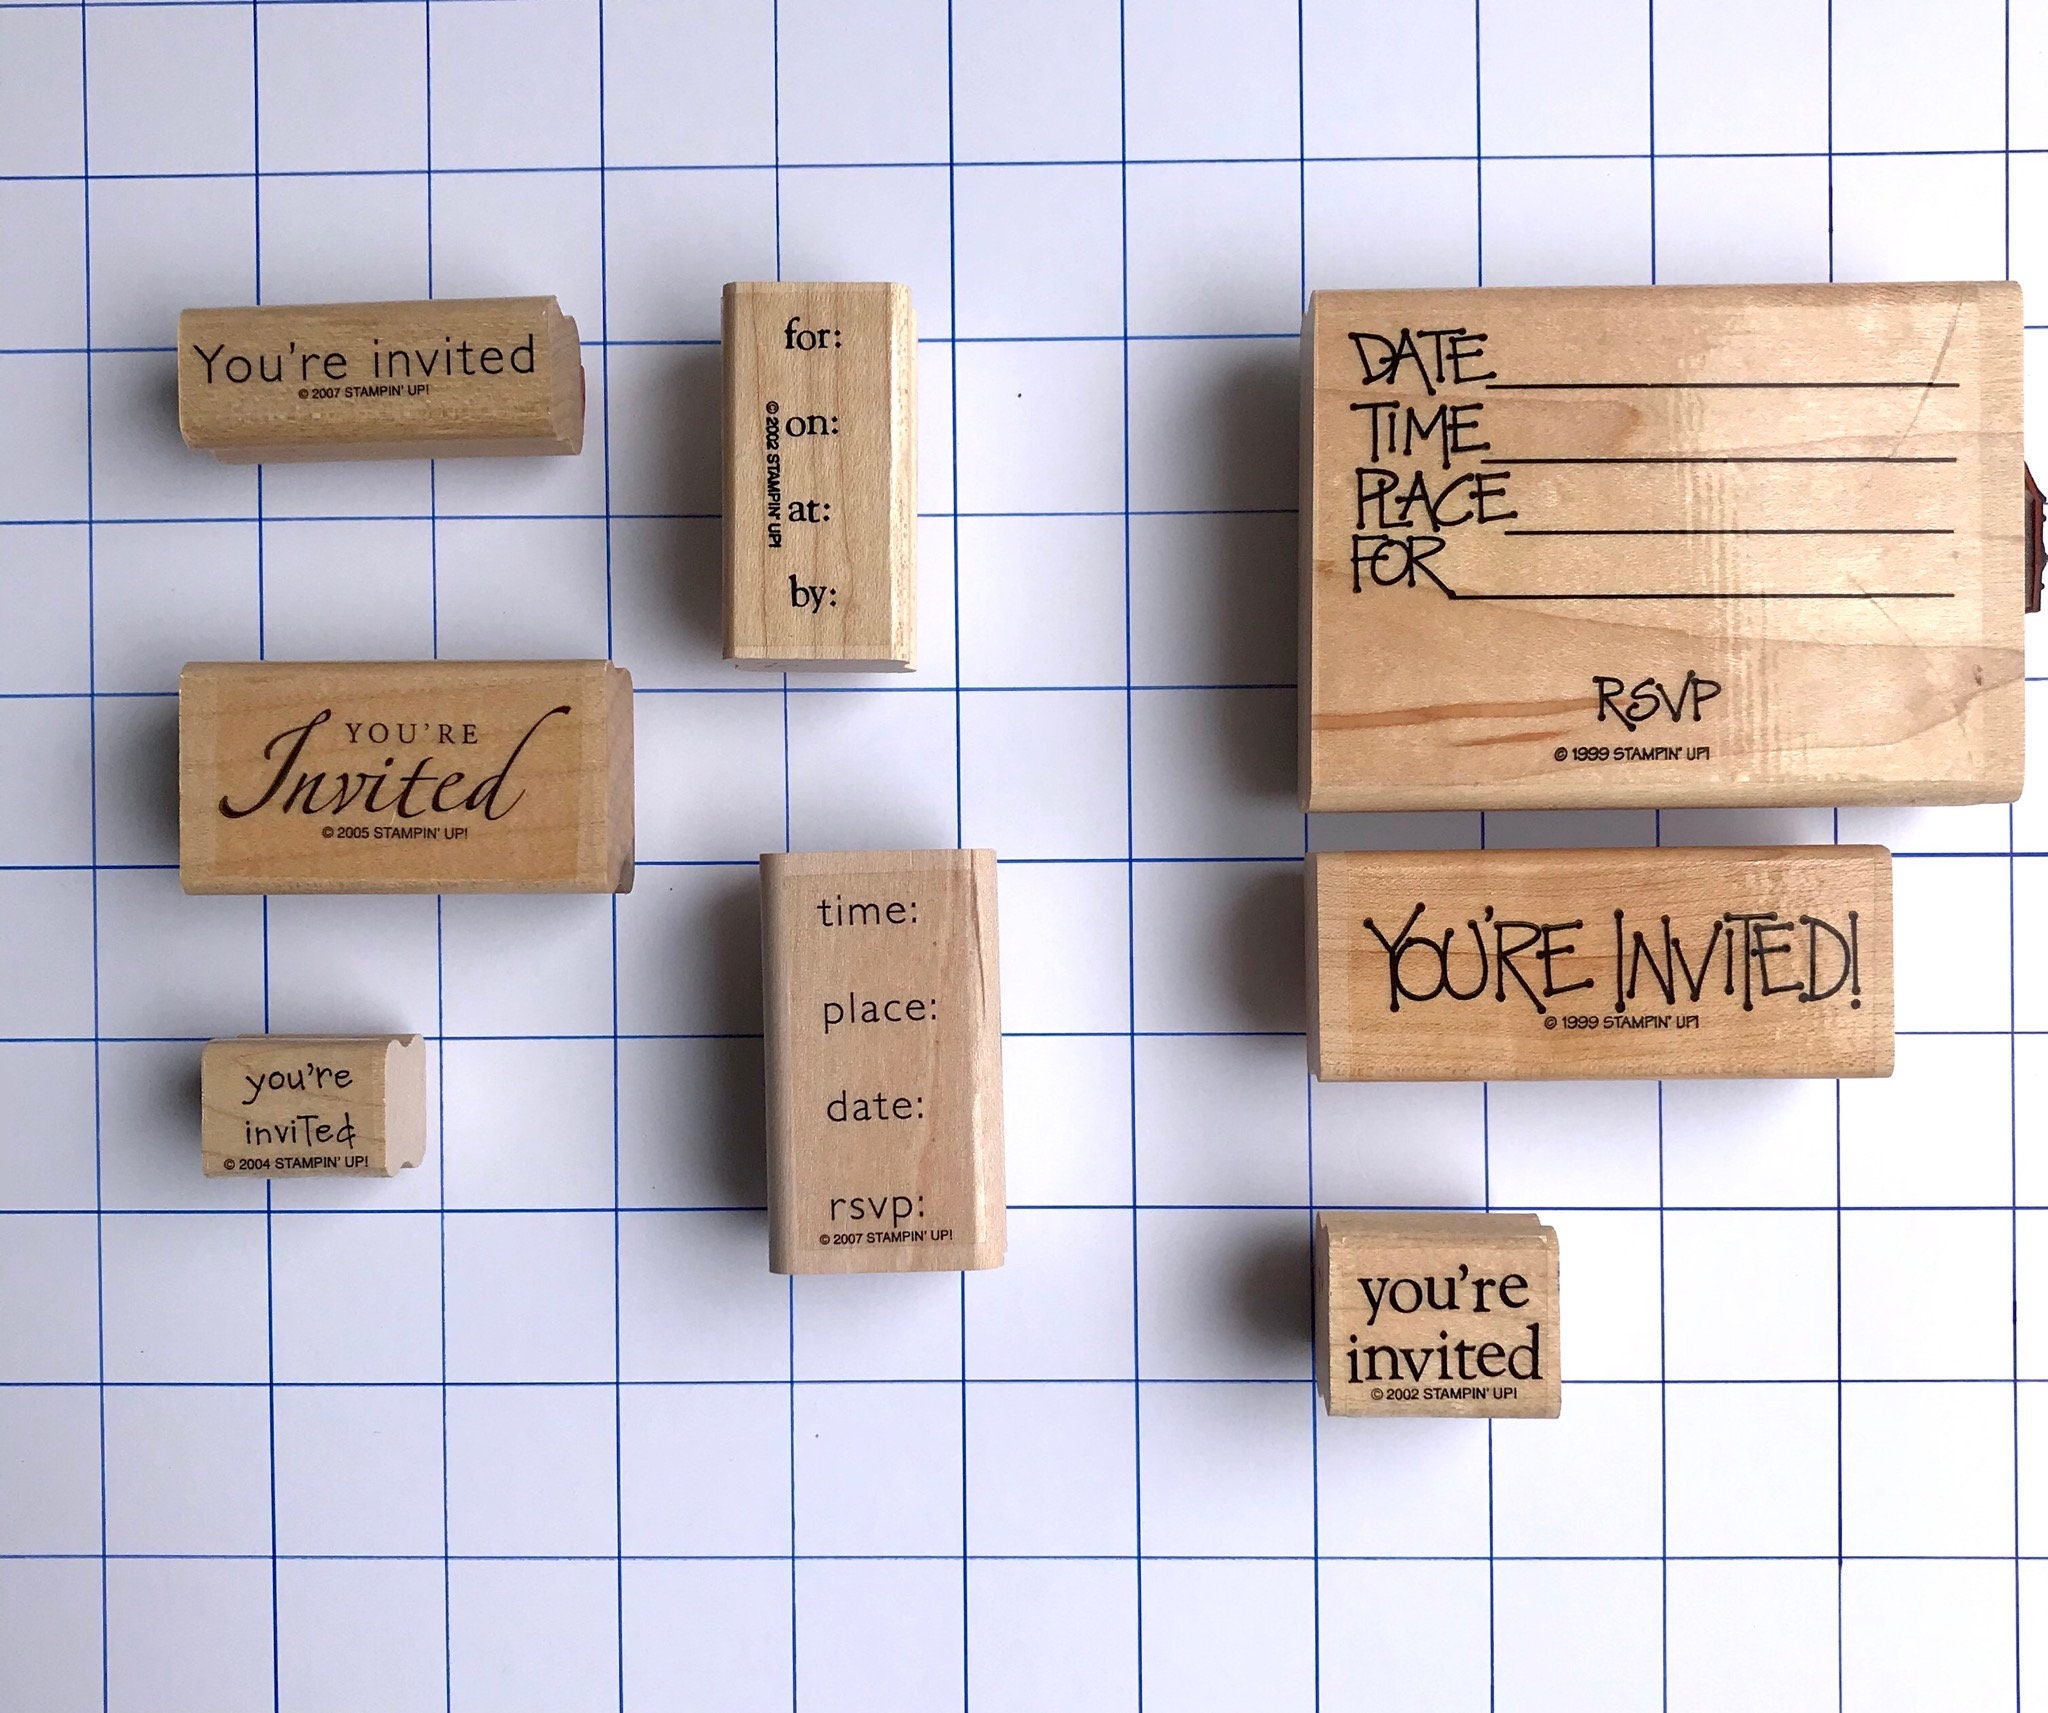 You're invited
© 2007 STAMPIN' UP!
YOU'RE
Invited
© 2005 STAMPIN' UP!
you're
inviTed
© 2004 STAMPIN' UP!
for:
on:
at:
by:
© 2002 STAMPIN' UP!
time:
place:
date:
rsvp:
© 2007 STAMPIN' UP!
DATE
TIME
PLACE
FOR
RSVP
© 1999 STAMPIN' UP!
YOU'RE INVITED!
© 1999 STAMPIN' UP!
you're
invited
© 2002 STAMPIN' UP!